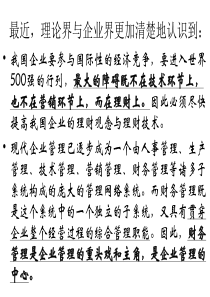 最近，理论界与企业界更加清楚地认识到：
• 我国企业要参与国际性的经济竞争，要进入世界
500强的行列，最大的障碍既不在技术环节上，
也不在营销环节上，而在理财上。因此必须尽快
提高我国企业的理财观念与理财技术。
• 现代企业管理已逐步成为一个由人事管理、生产
管理、技术管理、营销管理、财务管理等诸多子
系统构成的庞大的管理网络系统。而财务管理既
是这个系统中的一个独立的子系统，又具有贯穿
企业整个经营过程的综合管理职能。因此，财务
管理是企业管理的重头戏和主角，是企业管理的
中心。